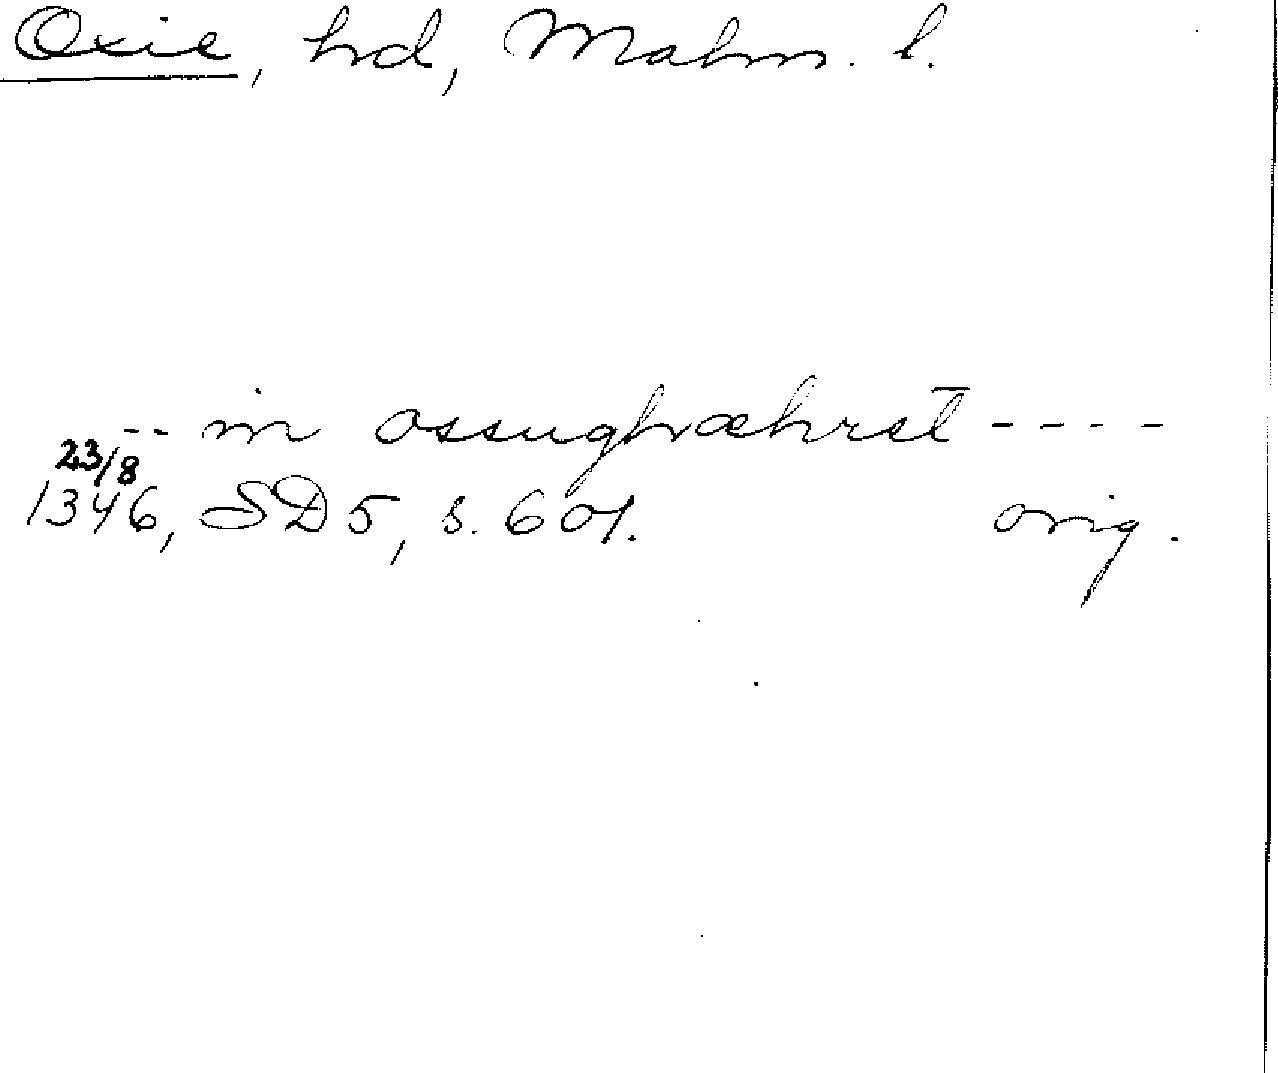 Oxie, hd, Malm. l.
-- in ossughæhræt̄ ----
23/8
1346, SD 5, s. 601. orig.